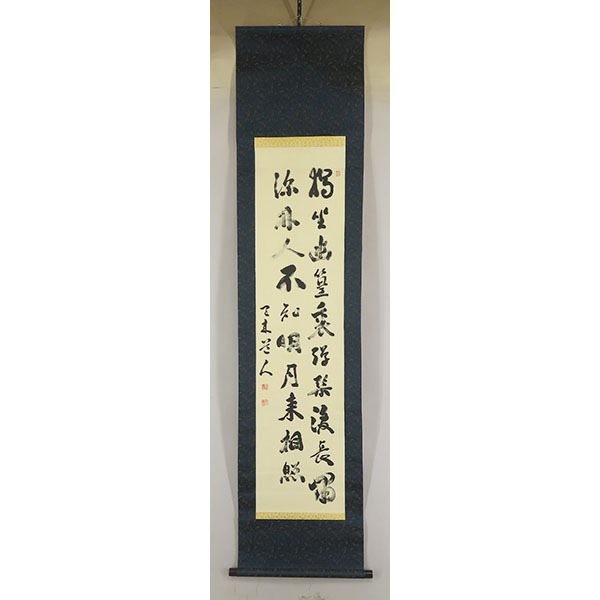 獨坐幽篁裏弾琴復長嘯
深林人不知明月来相照
道人